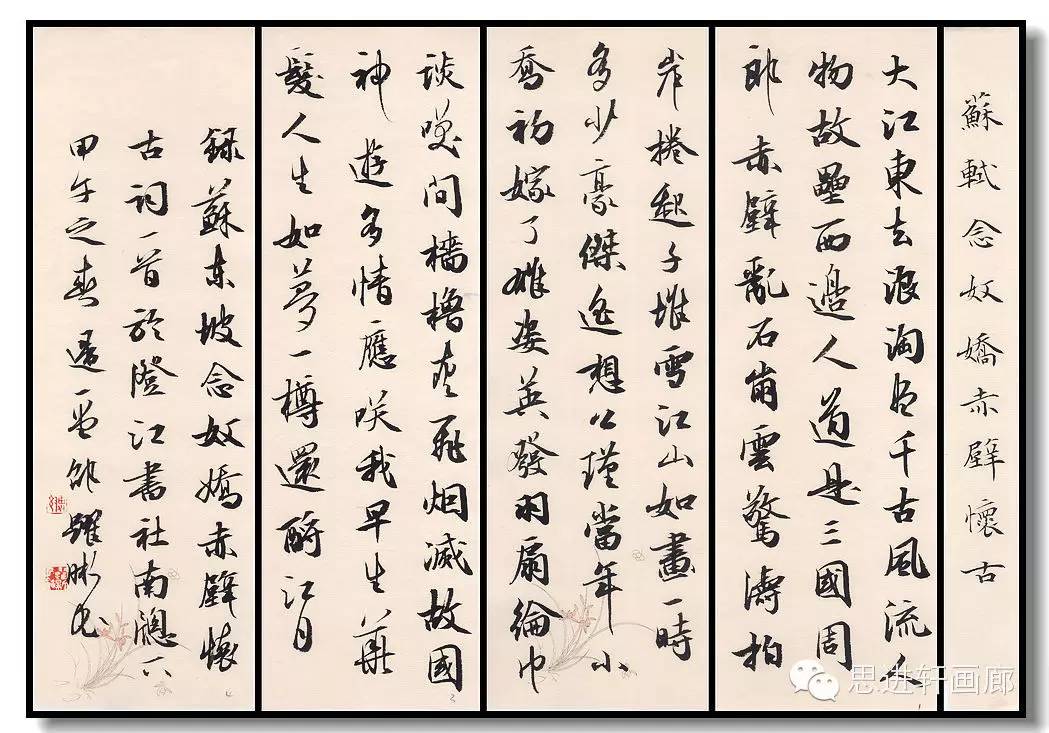 蘇軾念奴嬌赤壁懷古
大江東去浪淘尽千古風流人
物故壘西邊人道是三國周
郎赤壁亂石崩雲驚濤拍
岸捲起千堆雪江山如畫一時
多少豪傑遙想公瑾當年小
喬初嫁了雄姿英發羽扇綸巾
談咲间檣櫓灰飛烟滅故國
神遊多情應咲我早生華
髮人生如夢一樽還酹江月
録蘇東坡念奴嬌赤壁懷
古词一首於澄江書社南窓下
甲午之春
思进轩画廊